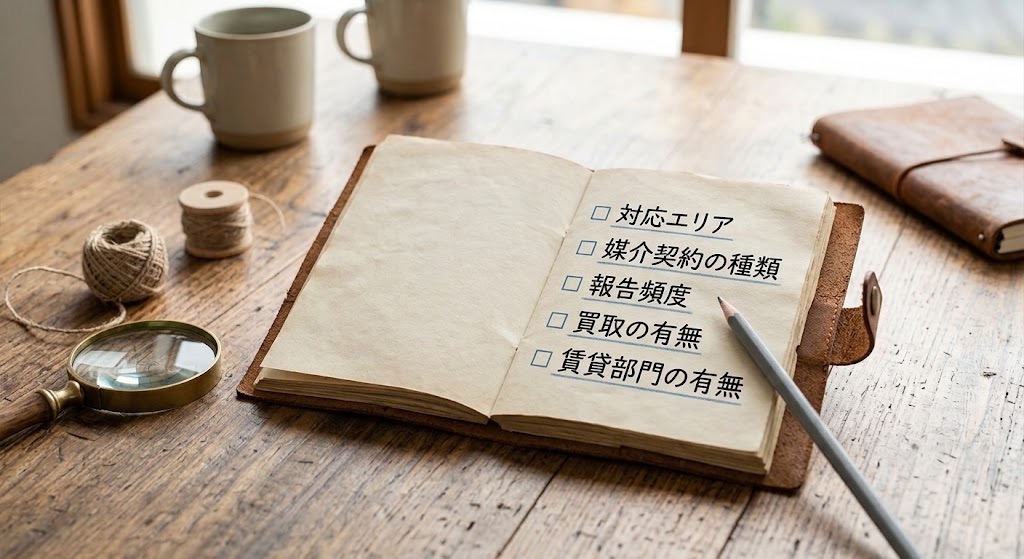 □ 対応エリア
□ 媒介契約の種類
□ 報告頻度
□ 買取の有無
□ 賃貸部門の有無